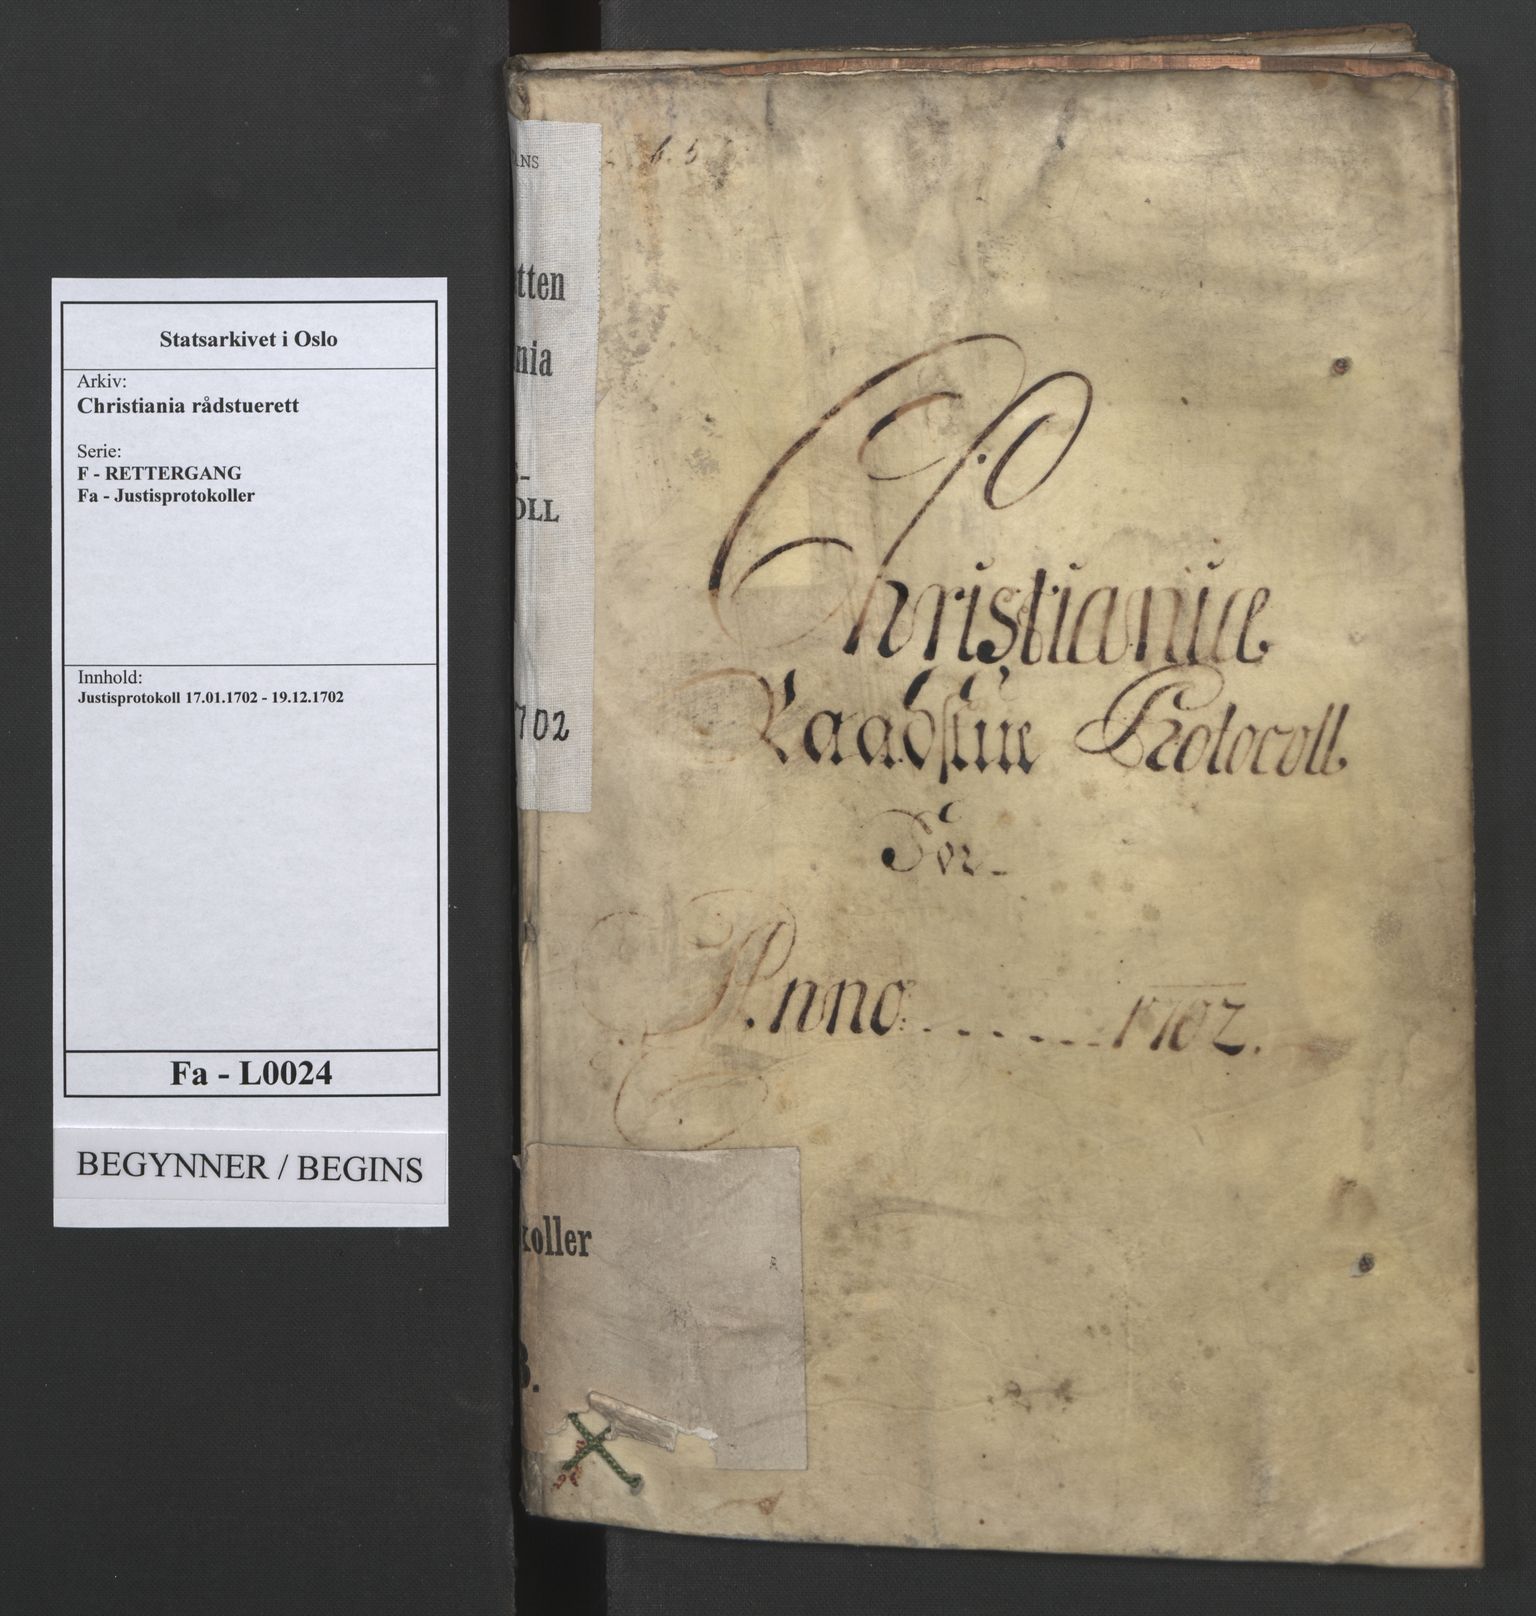 Statsarkivet i Oslo
Arkiv:
Christiania rådstuerett
Serie:
F - RETTERGANG
Fa - Justisprotokoller
Innhold:
Justisprotokoll 17.01.1702 - 19.12.1702
Fa - L0024
BEGYNNER / BEGINS
ANS
tten
nia
S-
OLL
1702
Christianiæ
Raadstue Protocoll
For
Anno......1702.
koller
3.